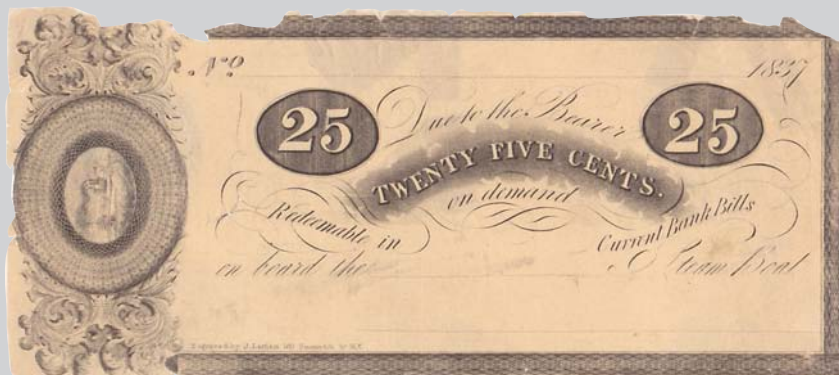 No 1837
25 Due to the Bearer 25
TWENTY FIVE CENTS.
on demand
Redeemable in Current Bank Bills
on board the Steam Boat
Engraved by J.